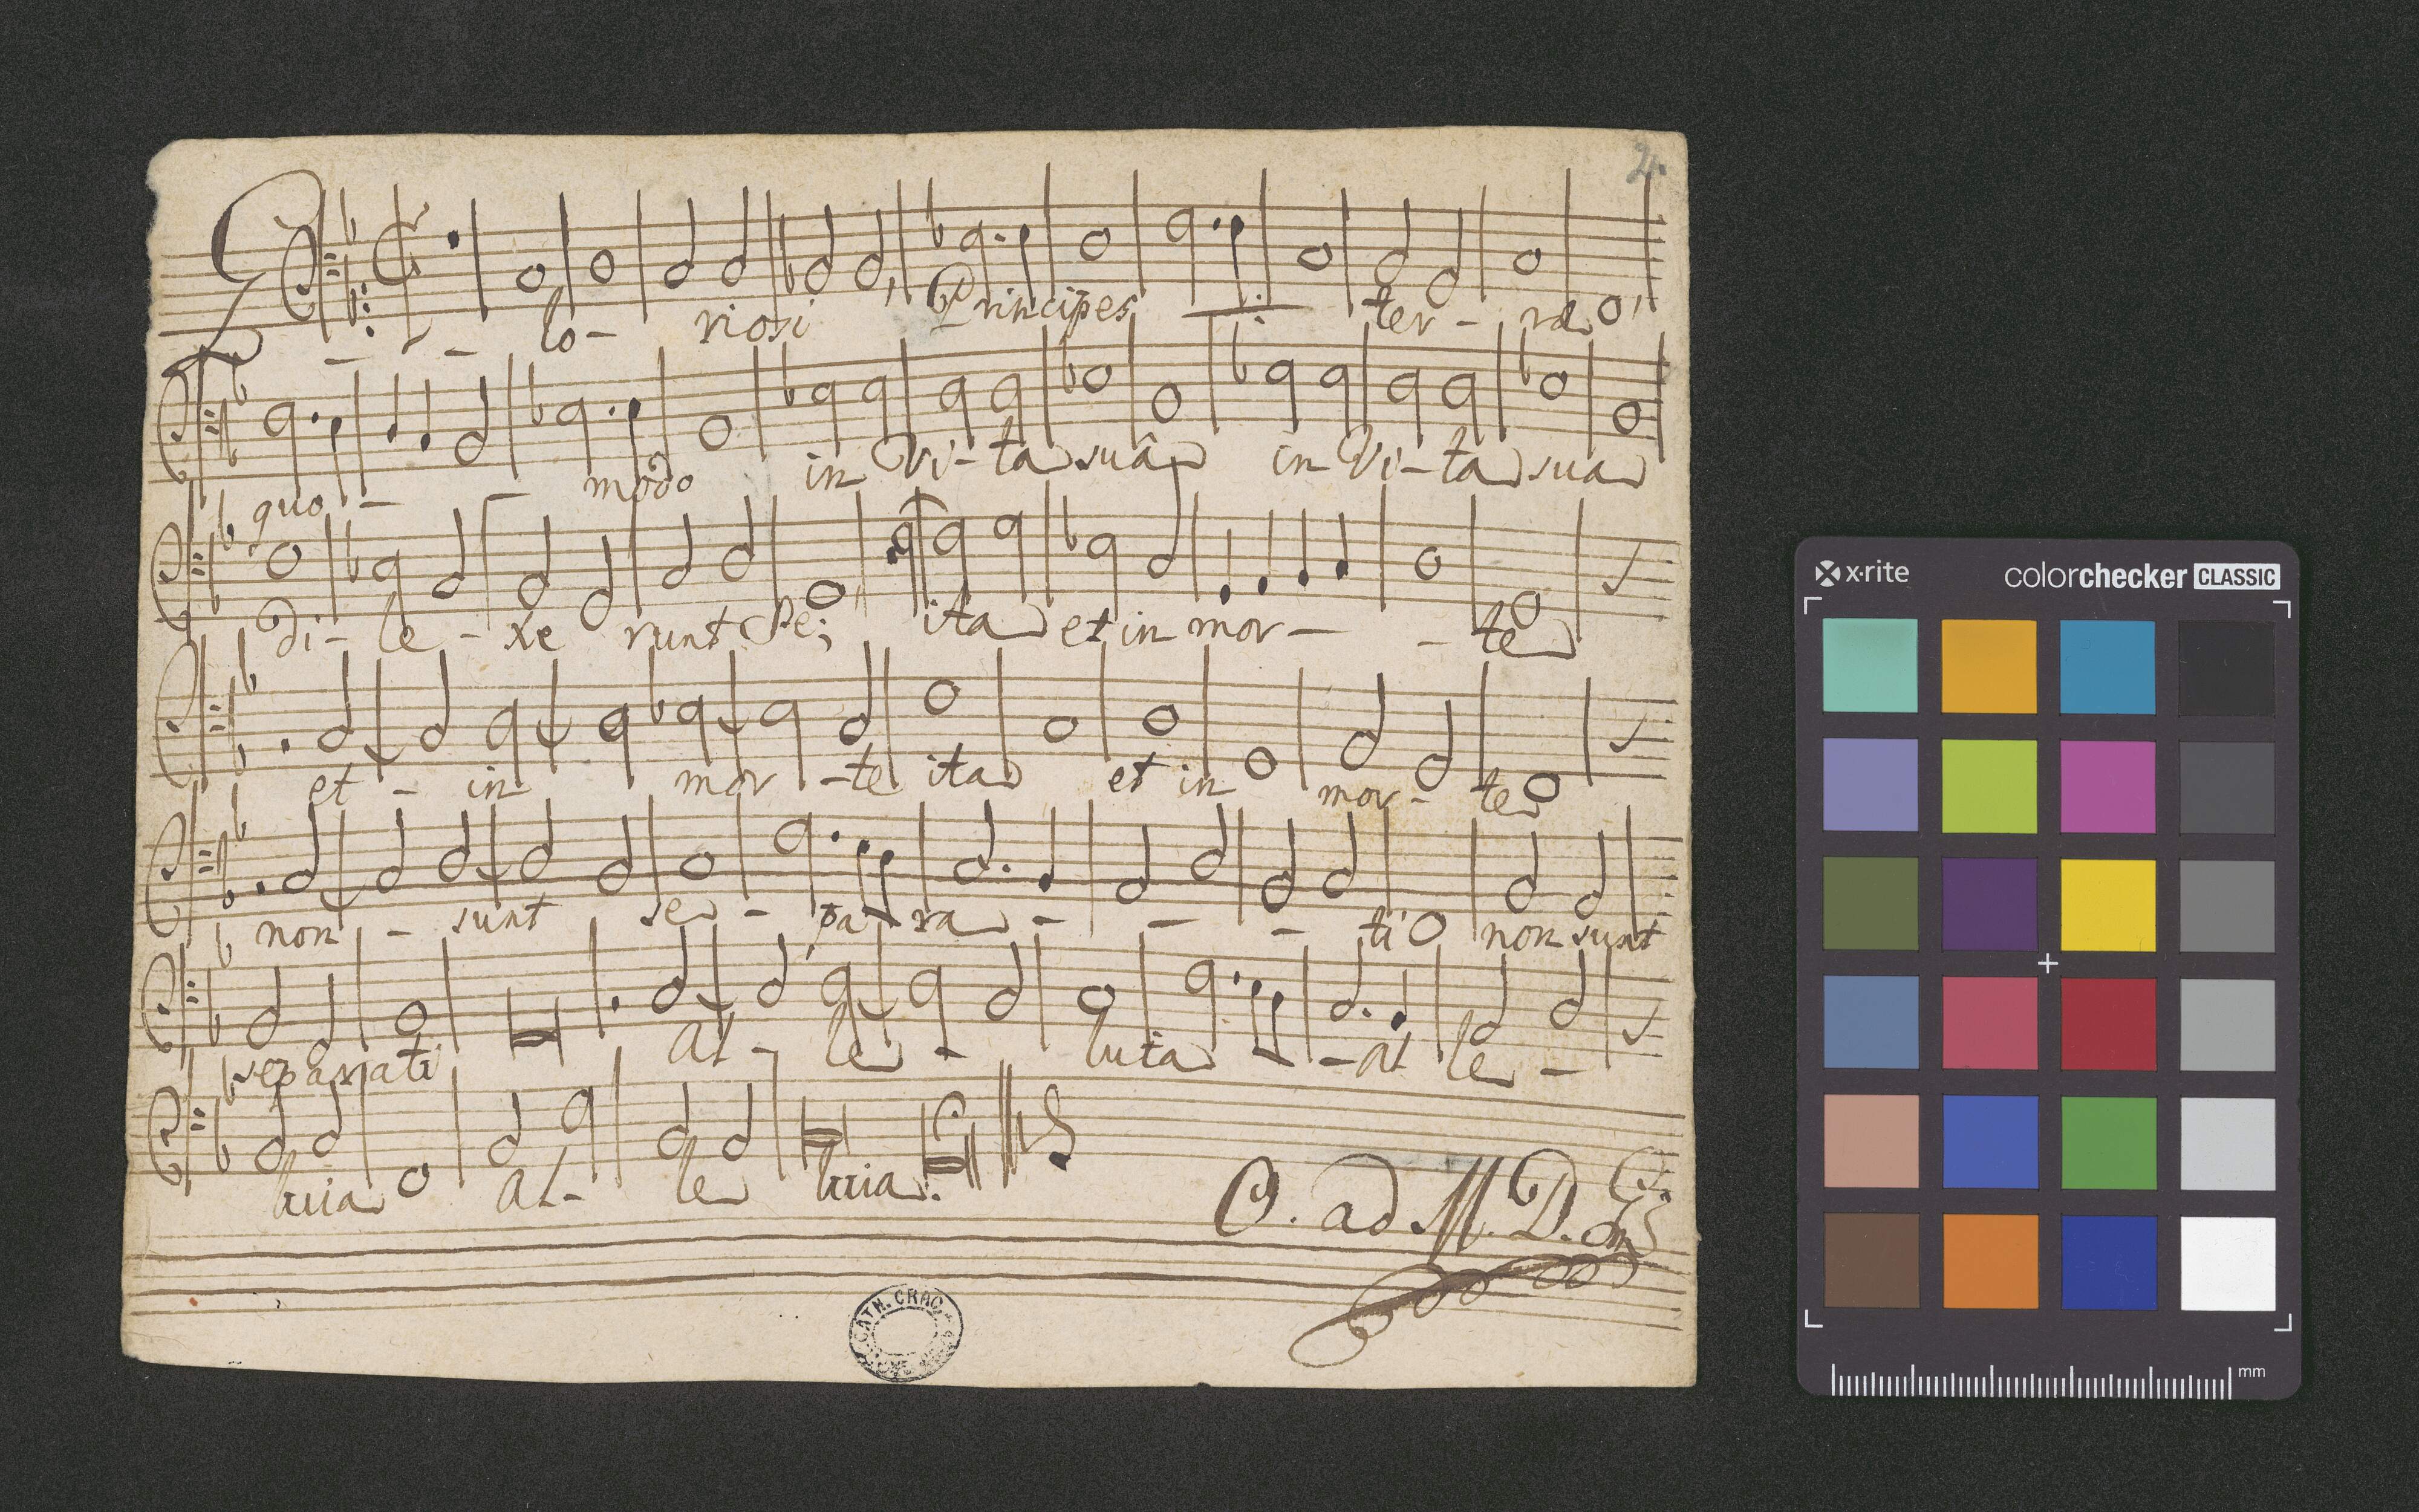 2.
Glo- riosi Principes ter- ræ
quo - modo in vi-ta suâ in vi-ta sua
di- le- xe runt se; ita et in mor- - te
et - in mor -te ita et in mor- te
non - sunt se - pa ra - - - ti non sunt
separati Al- le - luia -al le -
luia Al- le luia.
O. ad M. D. G.
CATH. CRAC.
x-rite
colorchecker CLASSIC
mm